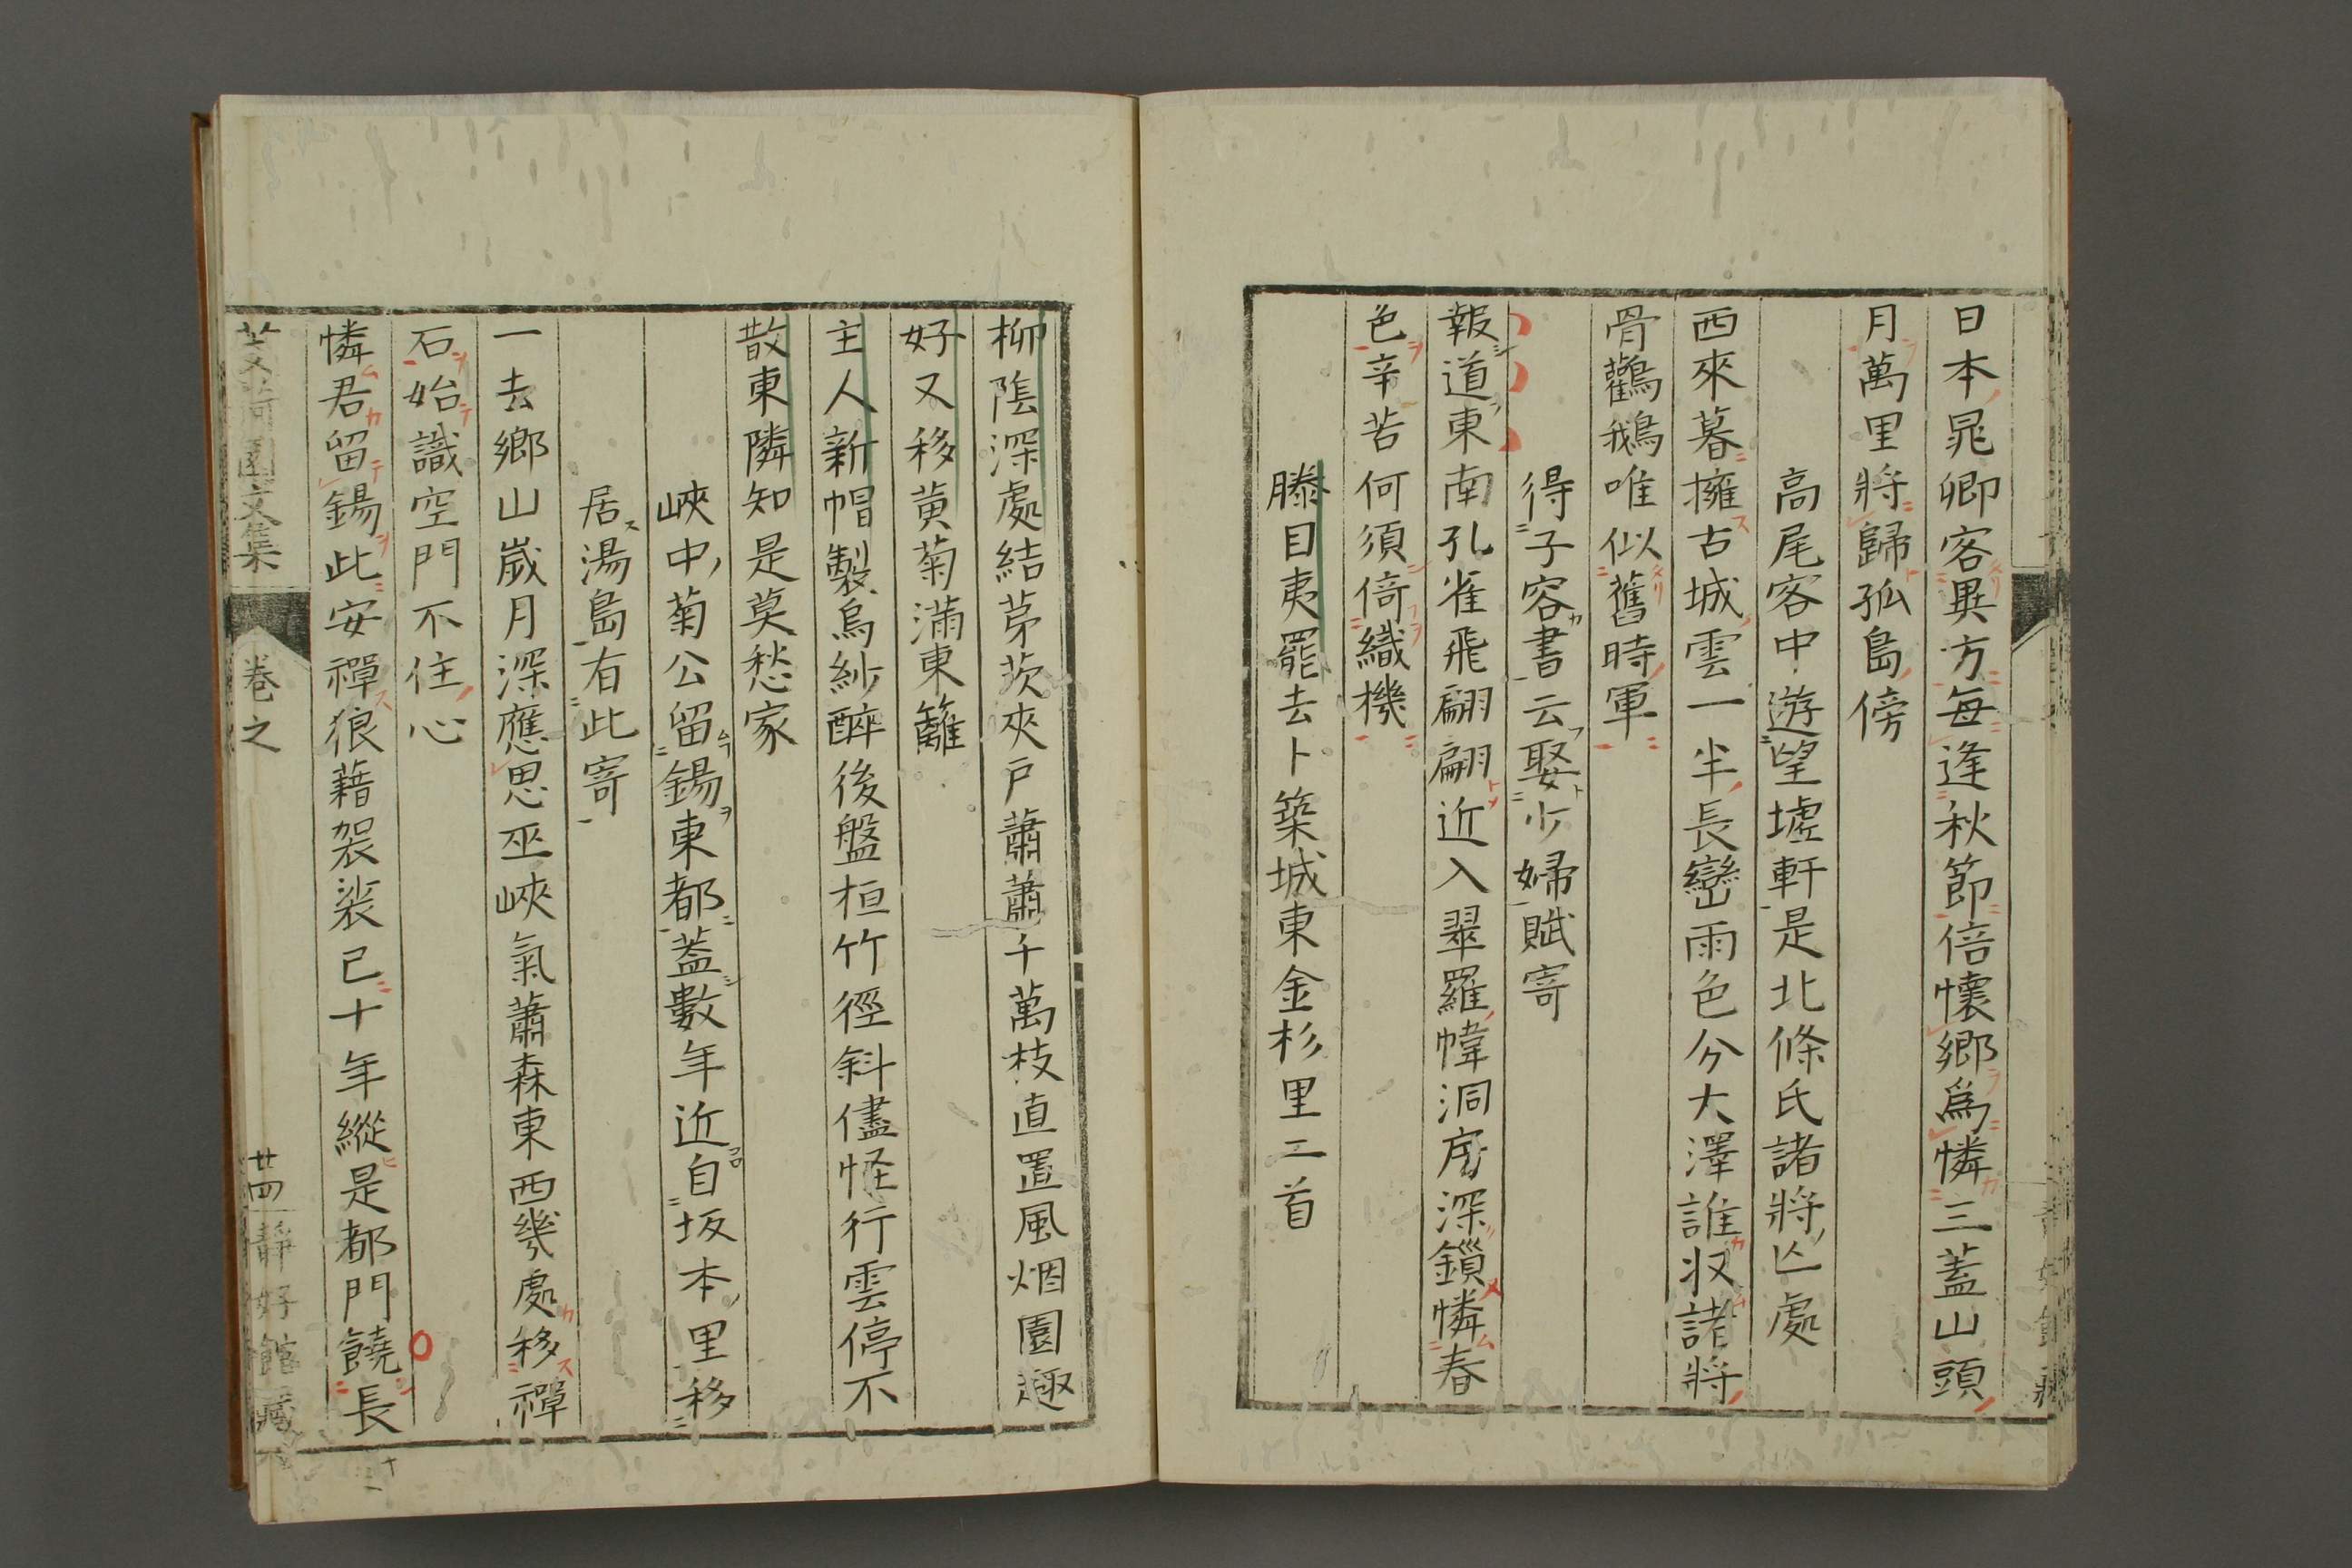 日本晁卿客異方每逢秋節倍懷鄉爲憐三蓋山頭
月萬里將歸孤島傍
高尾客中遊望墟軒是北條氏諸將亾處
西來暮擁古城雲一半長巒雨色分大澤誰収諸將
骨鸛鵝唯似舊時軍
得子容書云娶少婦賦寄
報道東南孔雀飛翩翩近入翠羅幃洞房深鎻憐春
色辛苦何須倚織機
滕目夷罷去卜築城東金杉里二首
柳陰深處結茅茨夾戶蕭蕭千萬枝直置風烟園趣
好又移黃菊滿東籬
主人新帽製烏紗醉後盤桓竹徑斜儘怪行雲停不
散東隣知是莫愁家
峽中菊公留錫東都蓋數年近自坂本里移
居湯島有此寄
一去鄉山歲月深應思巫峽氣蕭森東西幾處移禪
石始識空門不住心
憐君留錫此安禪狼藉袈裟已十年縱是都門饒長
文集
卷之
廿四
靜好館藏